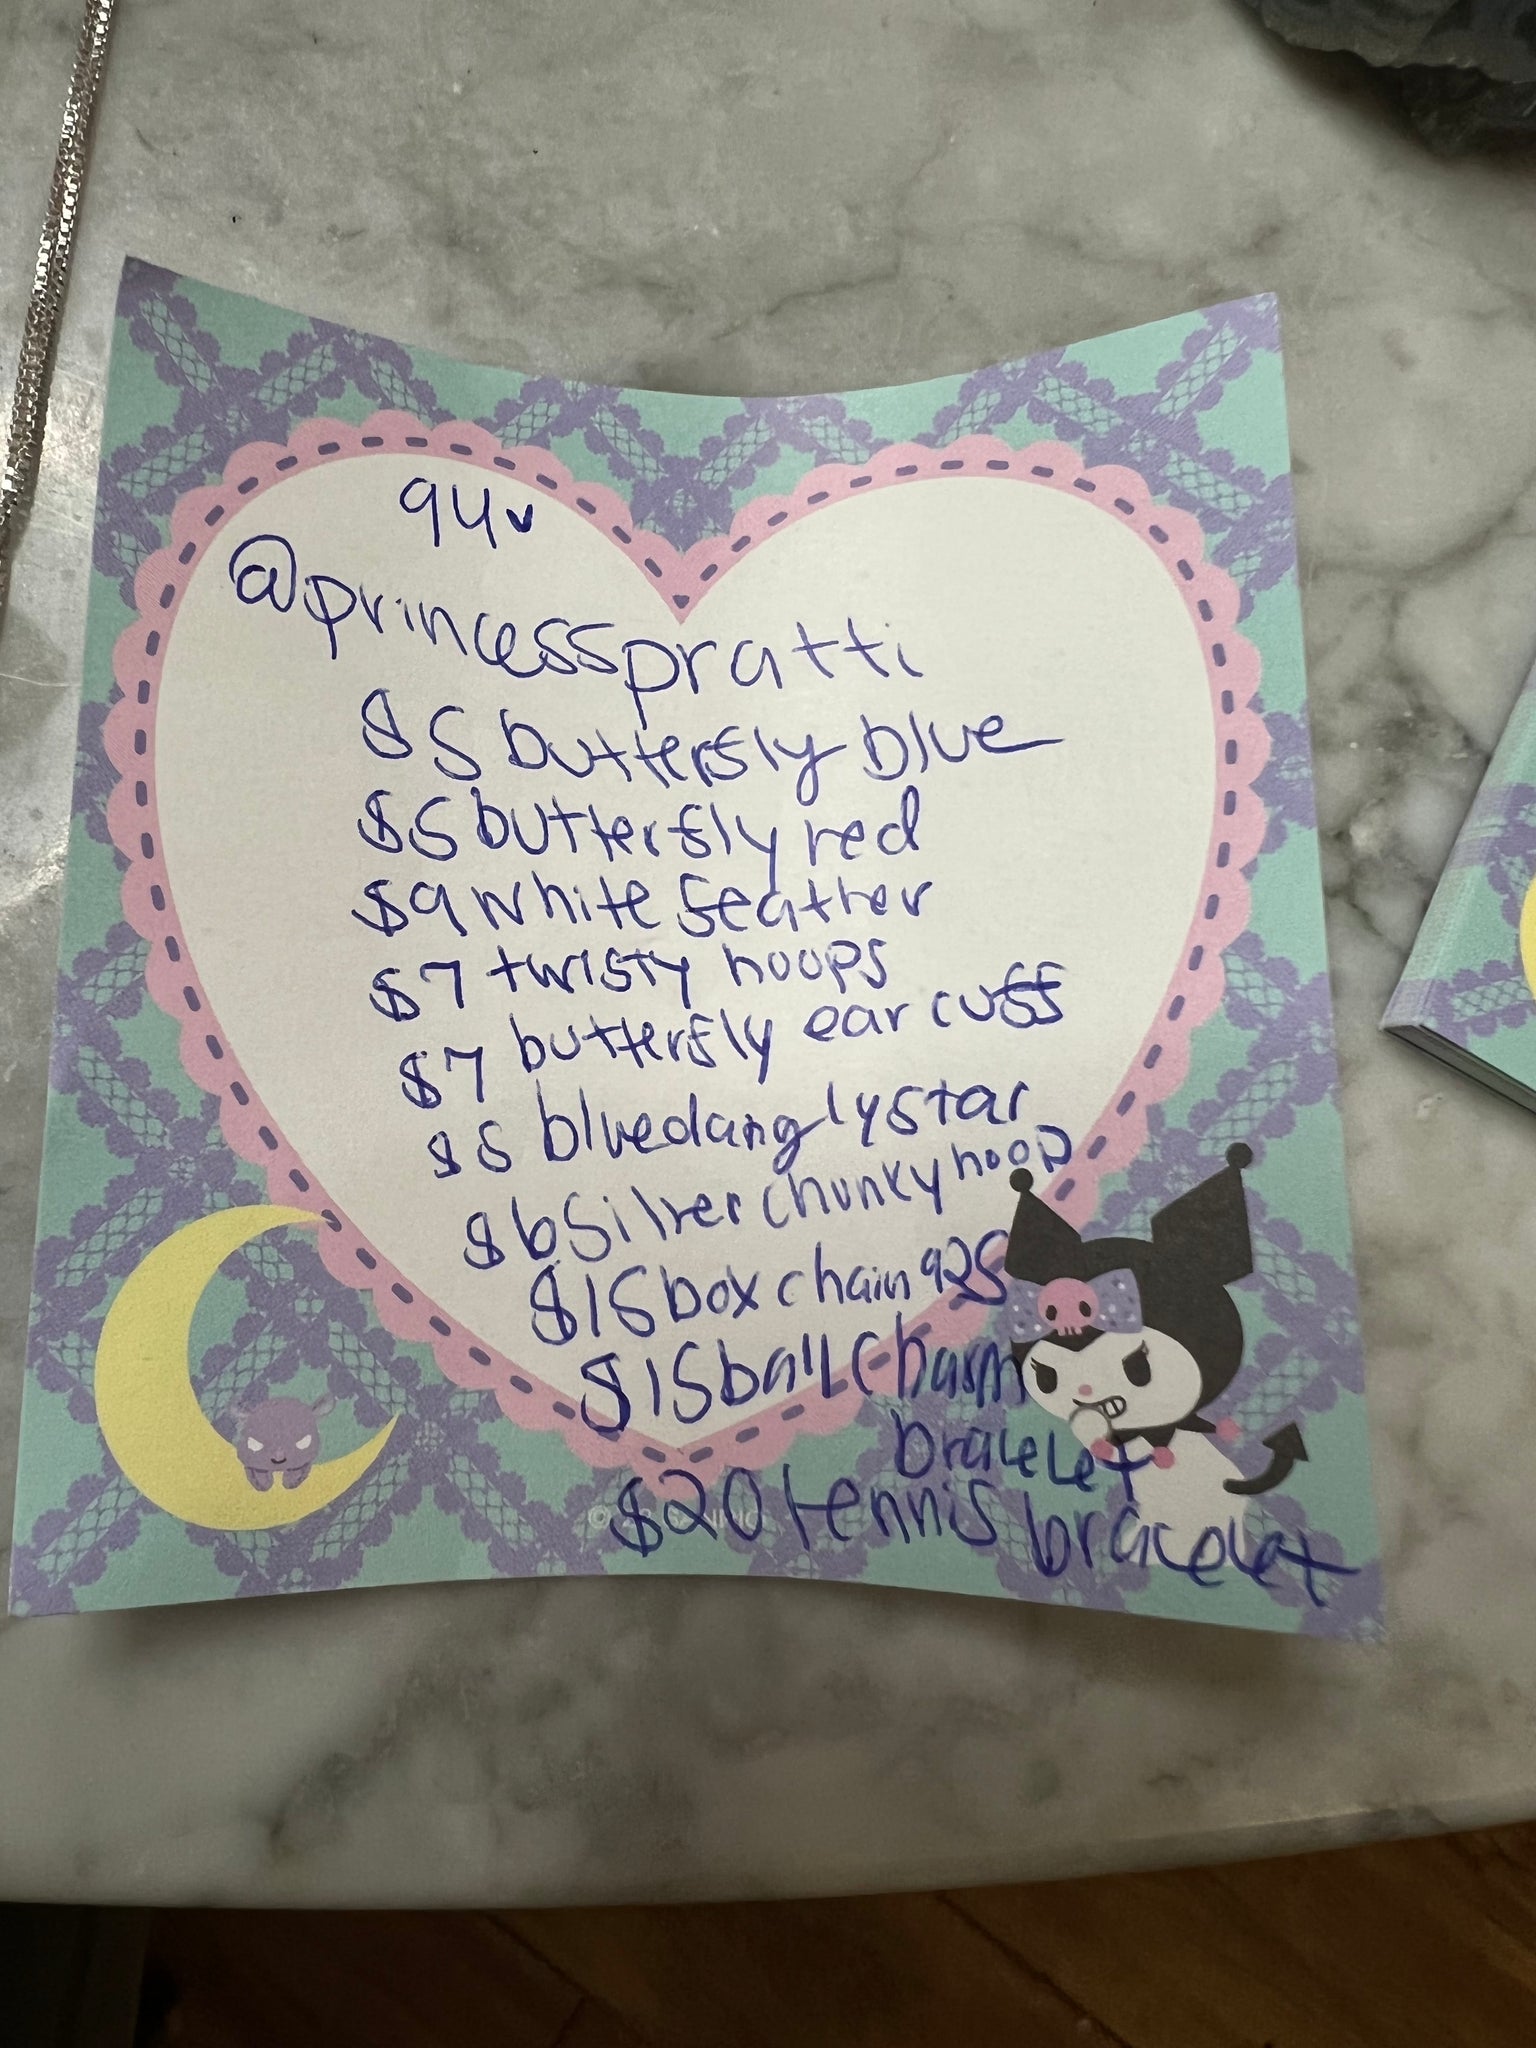 94
@princesspratti
$5 butterfly blue
$5 butterfly red
$9 white feather
$7 twisty hoops
$7 butterfly ear cuff
$5 blue dangly star
$6 silver chunky hoop
$15 box chain 925
$15 ball charm
bracelet
$20 tennis bracelet